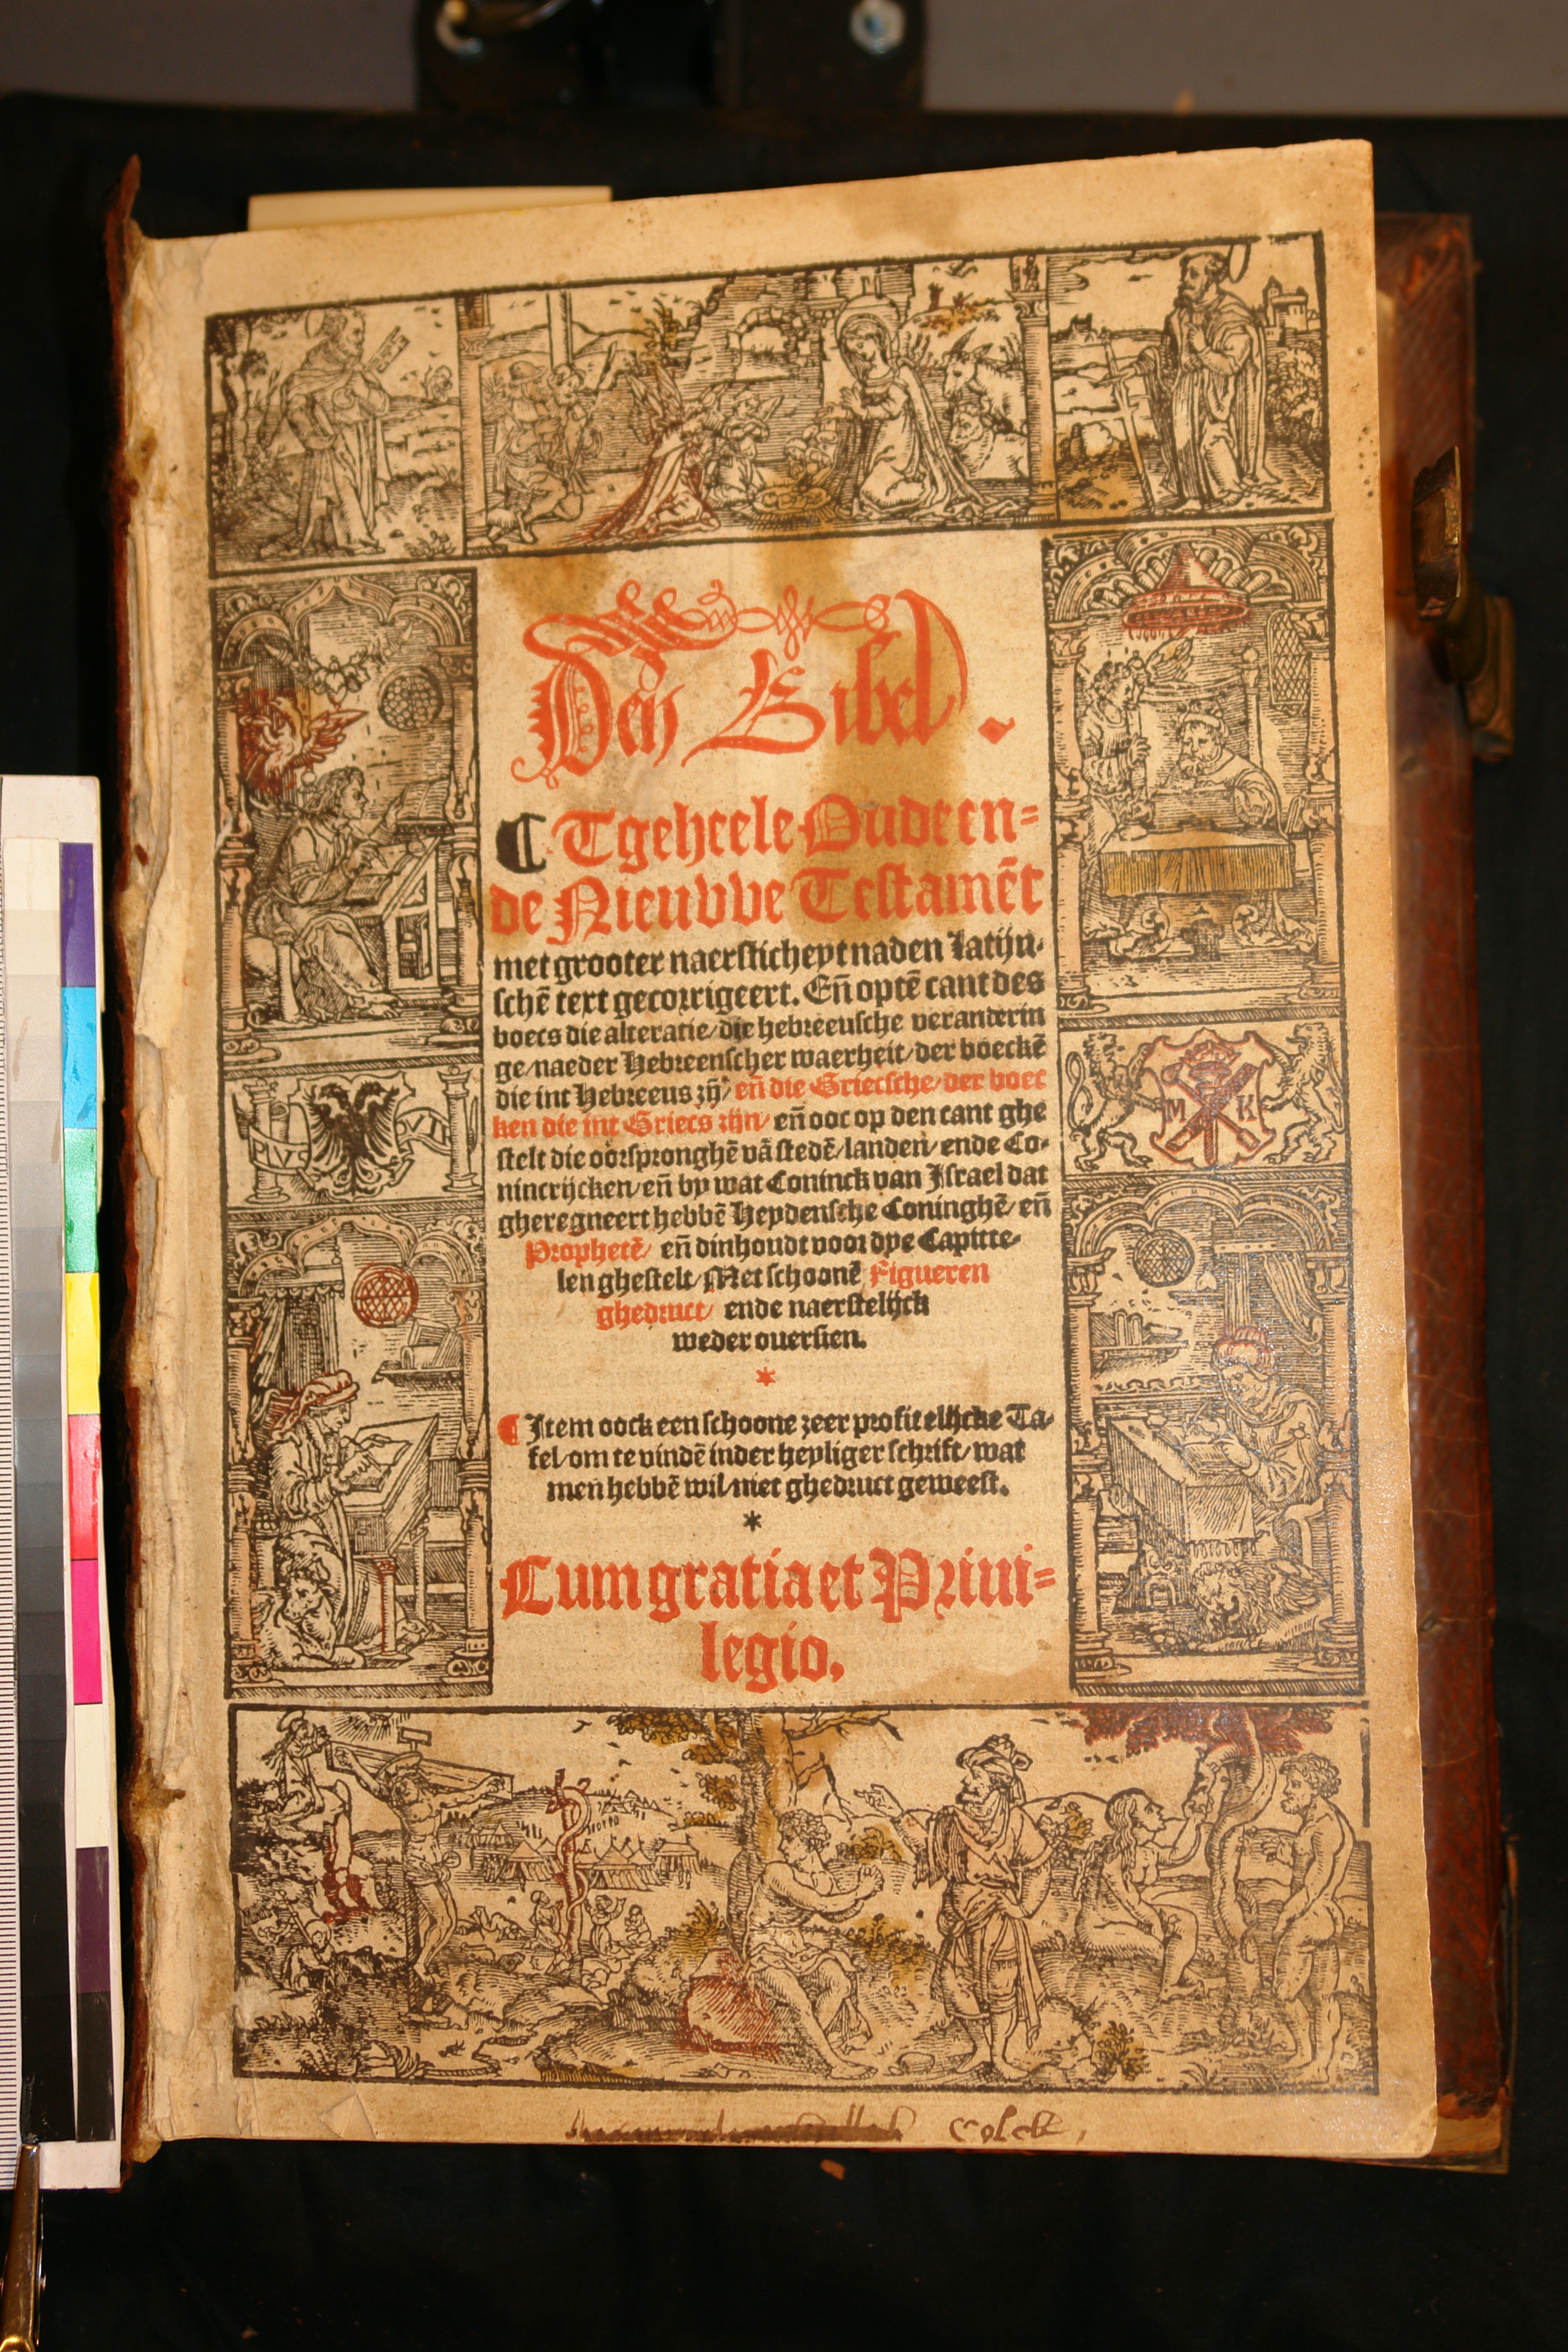 Den Bibel.
¶ Tgeheele Oude en=
de Nieuvve Testamēt
met grooter naersticheyt naden Latijn-
schē text gecorrigeert. Eñ optē cant des
boecs die alteratie/die hebreeusche veranderin
ge/naeder Hebreenscher waerheit/der boeckē
die int Hebreeus zijn/eñ die Griecsche/der boec
ken die int Griecs zijn/eñ ooc op den cant ghe
stelt die oorspronghē vā stedē/landen/ende Co-
nincrijcken/eñ by wat Coninck van Israel dat
gheregneert hebbē Heydensche Coninghē/eñ
Prophetē/ eñ dinhoudt voor dye Capitte-
len ghestelt/Met schoonē Figueren
ghedruct/ ende naerstelijck
weder ouersien.
*
¶ Item oock een schoone zeer profitelijcke Ta-
fel/om te vindē inder heyliger schrift/wat
men hebbē wil/niet ghedruct geweest.
*
Cum gratia et Priui=
legio.
M K